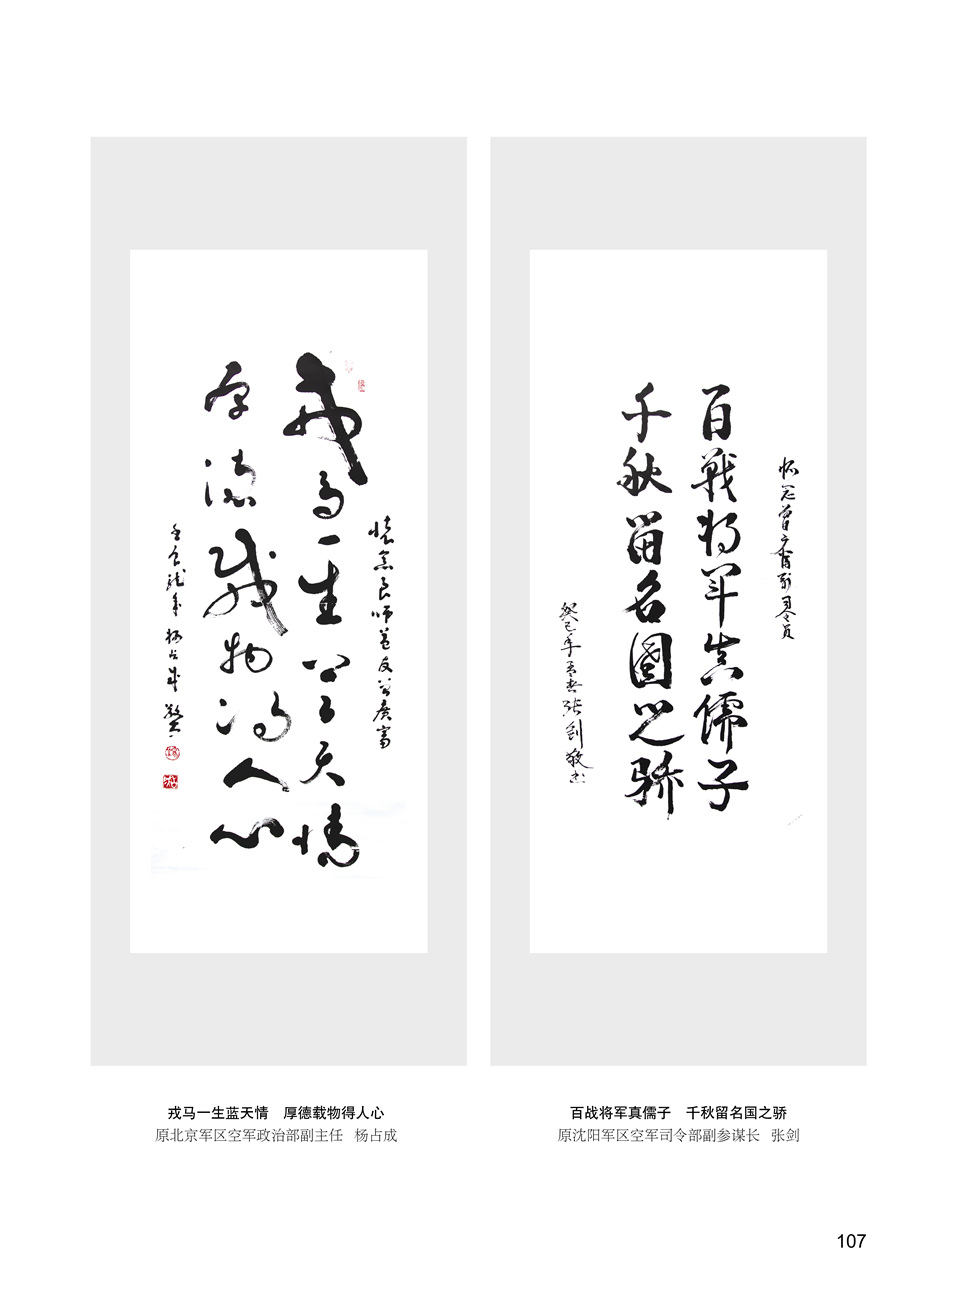 懷念良师益友曾廣富
戎马一生蓝天情
厚德载物得人心
壬辰龙年 杨占成
怀念曾广富副司令员
百戰将军真儒子
千秋留名國之骄
癸巳年孟春张剑敬书
戎马一生蓝天情 厚德载物得人心
原北京军区空军政治部副主任 杨占成
百战将军真儒子 千秋留名国之骄
原沈阳军区空军司令部副参谋长 张剑
107